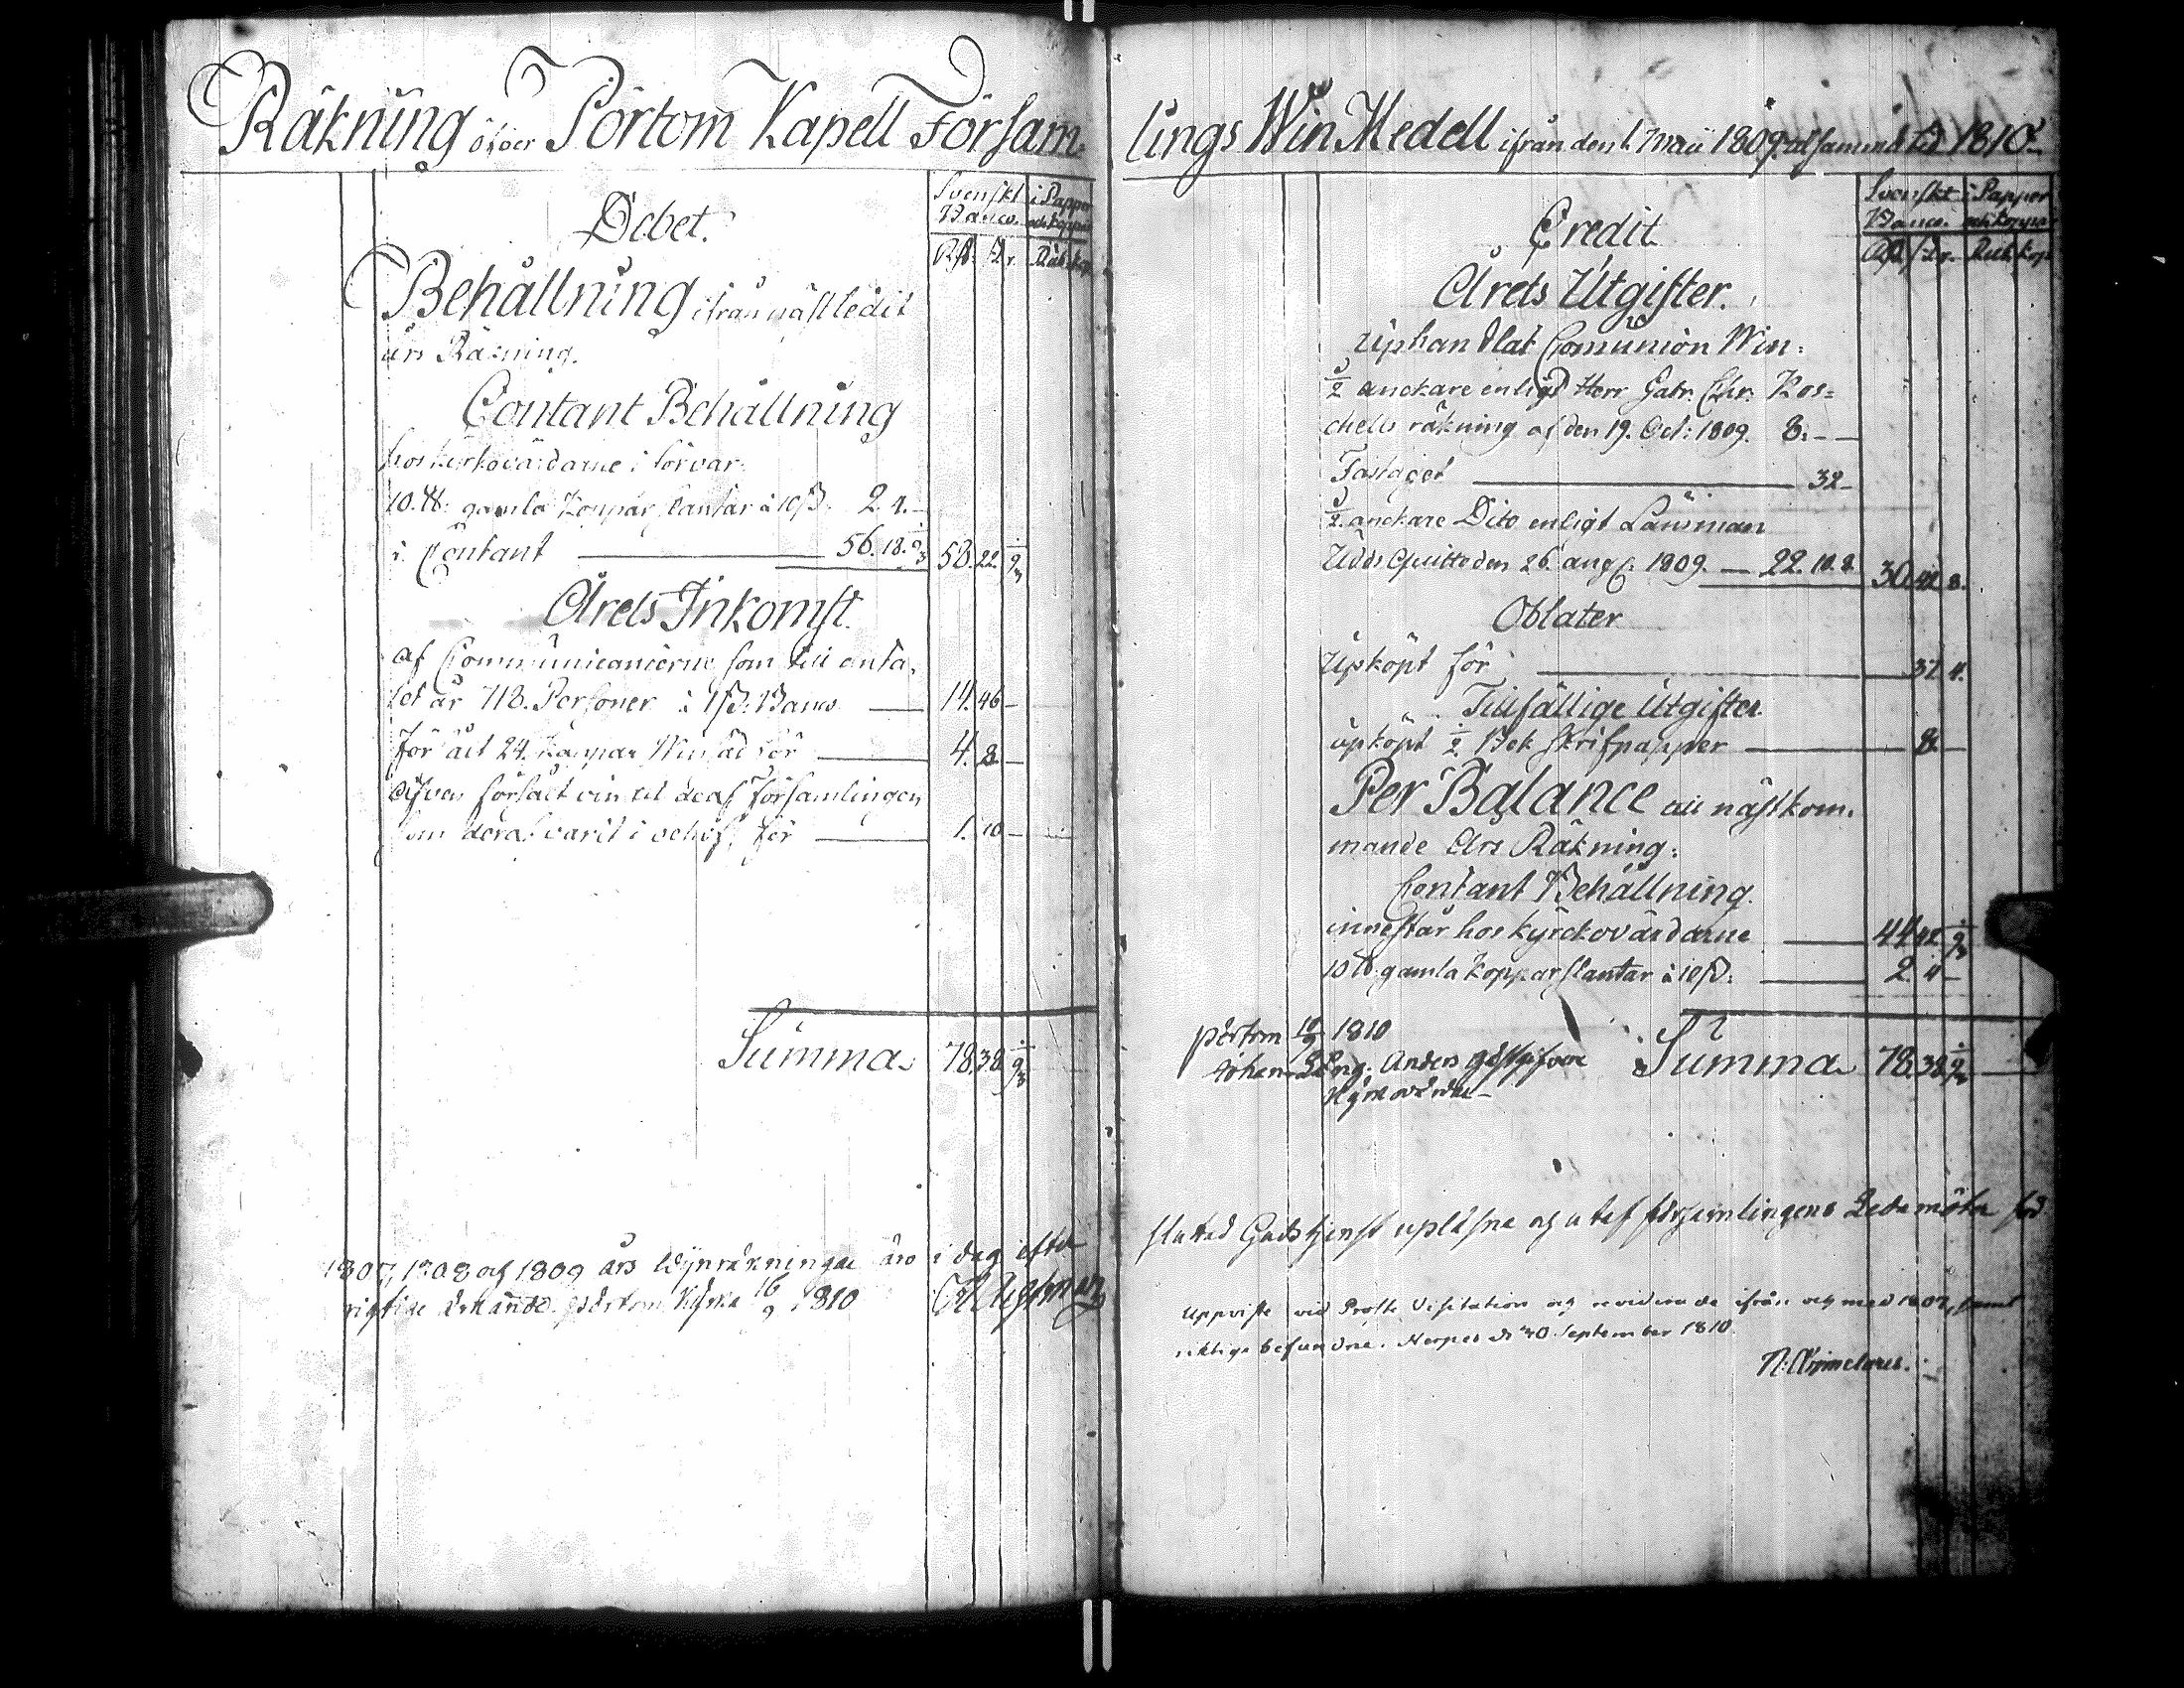 Räkning öfver Pörtom Kapell Församlings Win Medell ifrån den 1. Maii 1809. til samma tid 1810.
Debet.
Svenskt Banco. i Papper och Koppar
Rd. s. r. Rub. kop.
Behållning ifrån nästledit
års Räkning.
Contant Behållning
hos kyrkovärdarne i förvar.
10. ℔: gamla Koppar slantar à 10 ß. 2. 4. –
i Contant 56. 18. 9 58. 22. 9
Årets Inkomst.
af Communicanterne som till anta-
let är 718. Personer à 1 ß. Banco 14. 46 –
för ält 24. kappar Winsäd för 4. 8. –
Äfven försält vin til de af församlingen
som deraf varit i behof, för 1. 10 –
Summa. 78. 38. 9
1807, 1808 och 1809 års Wijnräkningar äro i dag efter
riktige erkände. Pörtom Kyrka 16/9 1810
Credit
Svenskt Banco. i Papper och Koppar
Rd. s. r. Rub. kop.
Årets Utgifter.
Uphandlat Comunion Win:
1/2 anckare enligt Herr Gabr. Chr. Ros=
chells räkning af den 19. Oct: 1809. 8. – –
Fastaget 32 –
1/2 anckare Dito enligt Länsman
Udds Quitto den 26. aug. 1809. – 22. 10. 8. 30. 42 8.
Oblater
Upköpt för 37 4.
Tillfällige Utgifter.
upköpt 1/2 Bok skrifpapper 8. –
Per Balance till nästkom.
mande Års Räkning:
Contant Behållning.
innestår hos kyrckovärdarne 44. 42 9
10 ℔ gamla Kopparslantar à 10 ß. 2. 4 –
Pörtom 16/9 1810
Johan Anders
Kyrkovärdar –
Summa 78. 38. 9
slutad Gudstjenst upläsne och utaf församlingens Ledamöter för
Uppviste vid Prosts Visitation och reviderade ifrån och med 1807, samt
riktige befundne. Nerpes d. 30 September 1810.